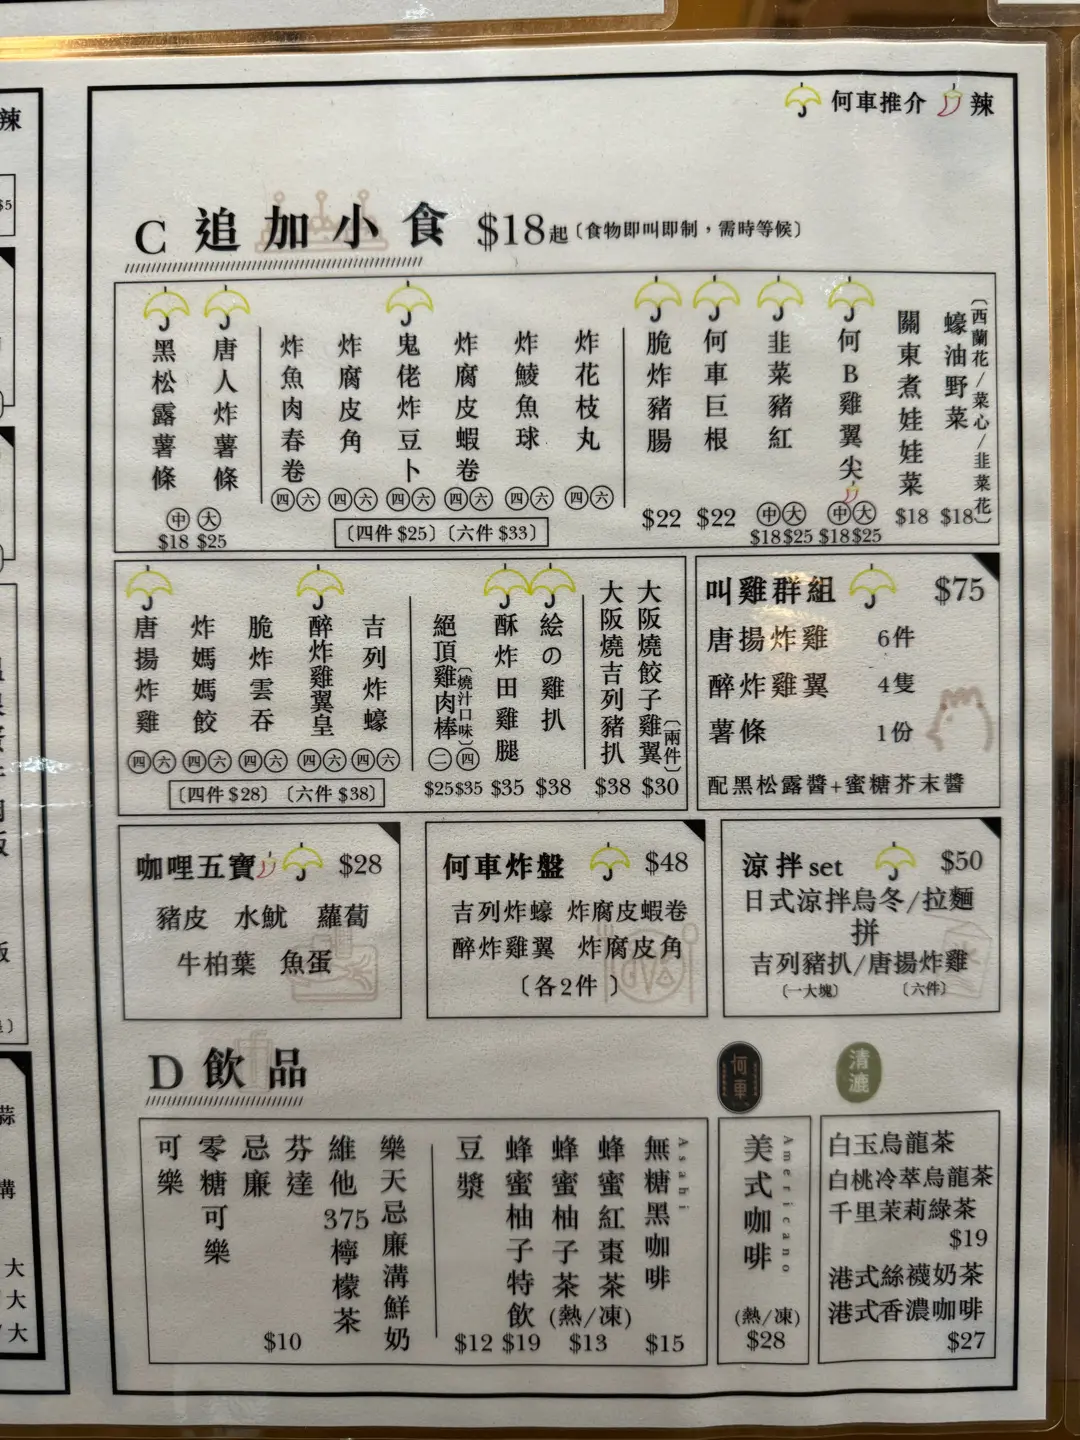 何車推介 辣
C 追加小食 $18起〔食物即叫即制,需時等候〕
黑松露薯條
唐人炸薯條
中 大
$18 $25
炸魚肉春卷
炸腐皮角
鬼佬炸豆卜
炸腐皮蝦卷
炸鯪魚球
炸花枝丸
四六 四六 四六 四六 四六 四六
〔四件 $25〕〔六件 $33〕
脆炸豬腸
$22
何車巨根
$22
韭菜豬紅
中大
$18 $25
何B雞翼尖
中大
$18 $25
關東煮娃娃菜
$18
蠔油野菜
〔西蘭花/菜心/韭菜花〕
$18
唐揚炸雞
炸媽媽餃
脆炸雲吞
醉炸雞翼皇
吉列炸蠔
四六 四六 四六 四六 四六
〔四件 $28〕〔六件 $38〕
絕頂雞肉棒
〔燒汁口味〕
二 四
$25 $35
酥炸田雞腿
$35
絵の雞扒
$38
大阪燒吉列豬扒
$38
大阪燒餃子雞翼
〔兩件〕
$30
叫雞群組 $75
唐揚炸雞 6件
醉炸雞翼 4隻
薯條 1份
配黑松露醬+蜜糖芥末醬
咖哩五寶 $28
豬皮 水魷 蘿蔔
牛柏葉 魚蛋
何車炸盤 $48
吉列炸蠔 炸腐皮蝦卷
醉炸雞翼 炸腐皮角
〔各2件〕
涼拌set $50
日式涼拌烏冬/拉麵
拼
吉列豬扒/唐揚炸雞
〔一大塊〕 〔六件〕
D 飲品
可樂
零糖可樂
忌廉
芬達
維他375檸檬茶
樂天忌廉溝鮮奶
$10
豆漿
$12
蜂蜜柚子特飲
$19
蜂蜜柚子茶
蜂蜜紅棗茶
(熱/凍)
$13
無糖黑咖啡
Asahi
$15
何車
美式咖啡
Americano
(熱/凍)
$28
清漉
白玉烏龍茶
白桃冷萃烏龍茶
千里茉莉綠茶
$19
港式絲襪奶茶
港式香濃咖啡
$27
辣
$5
大
大
大